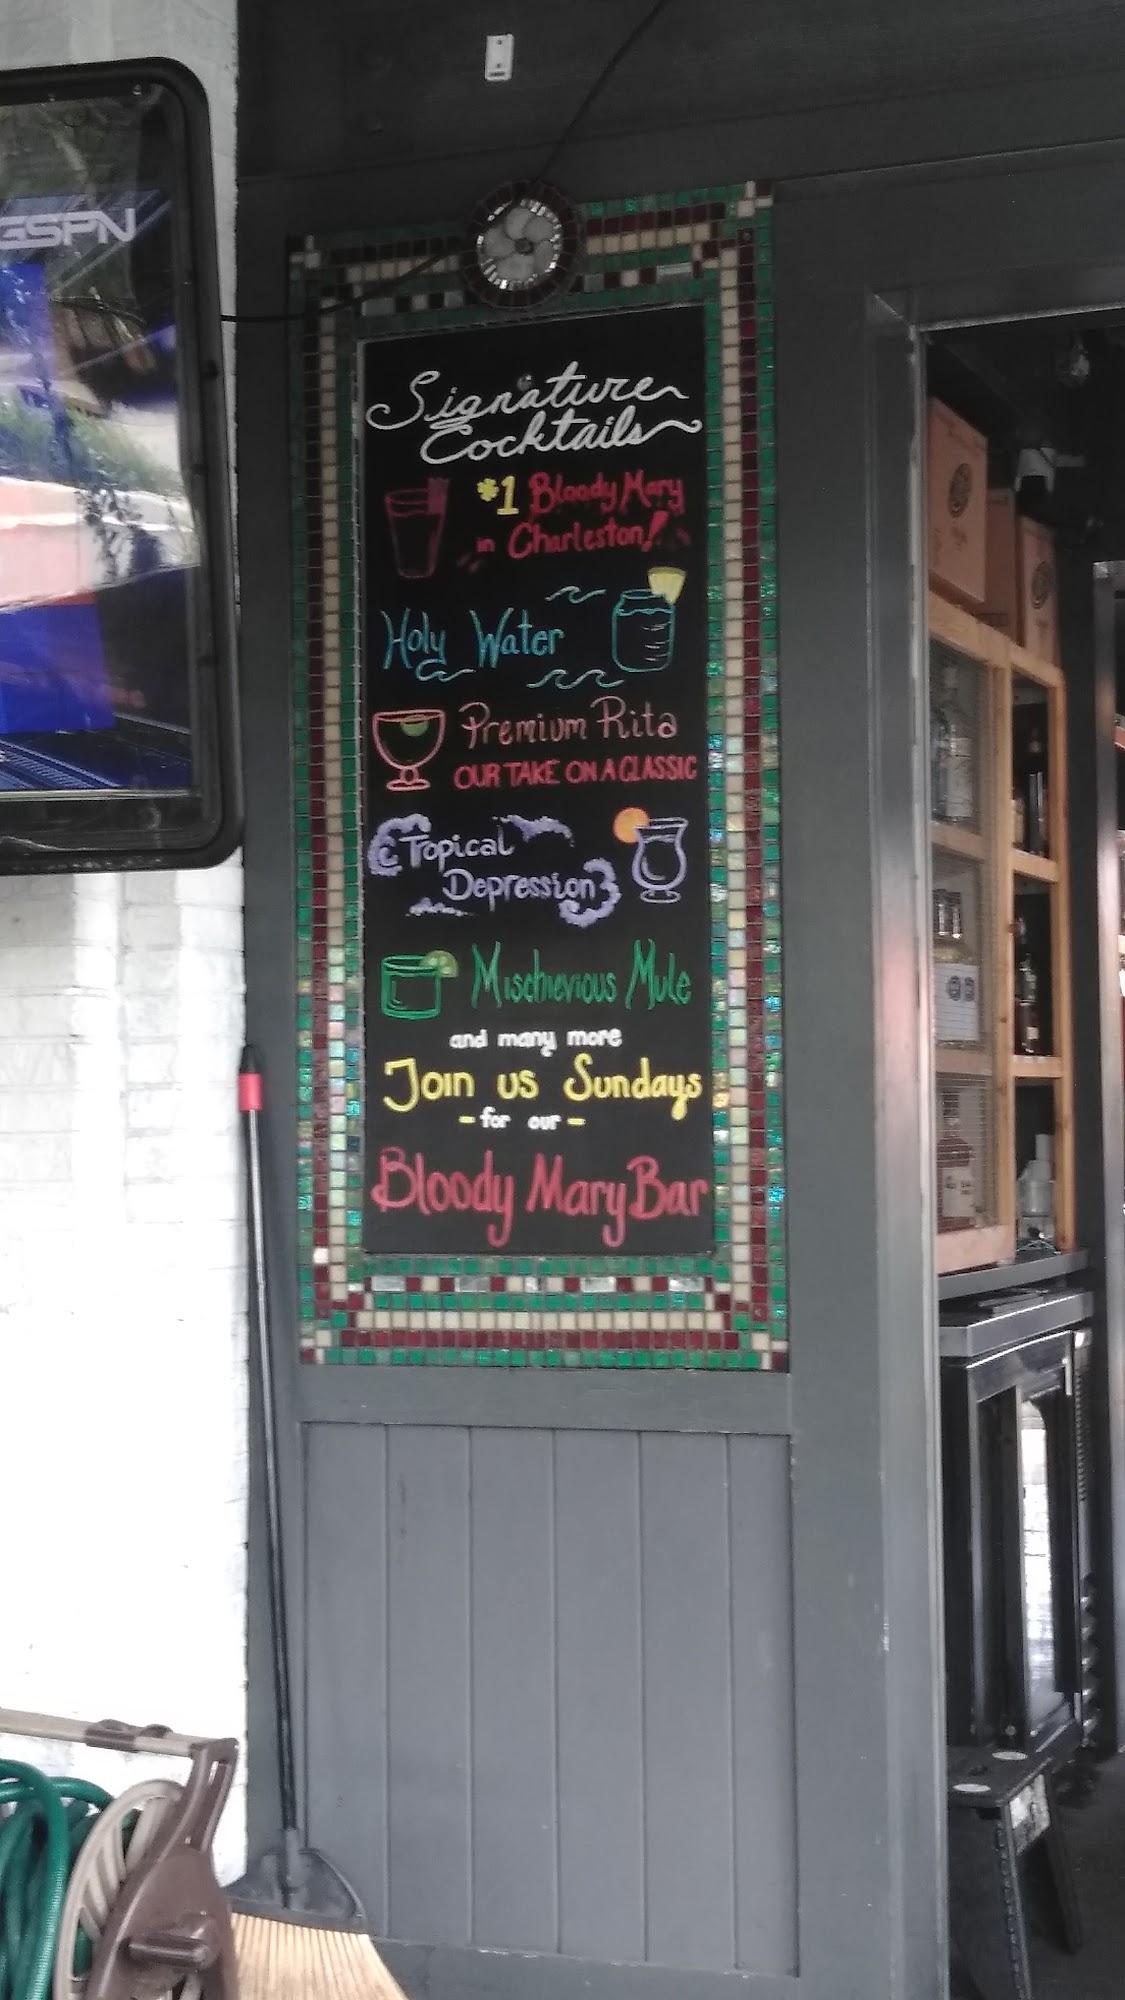 GSPN
Signature
Cocktails
#1 Bloody Mary
in Charleston!
Holy Water
Premium Rita
OUR TAKE ON A CLASSIC
Tropical
Depression
Mischievious Mule
and many more
Join us Sundays
- for our -
Bloody Mary Bar